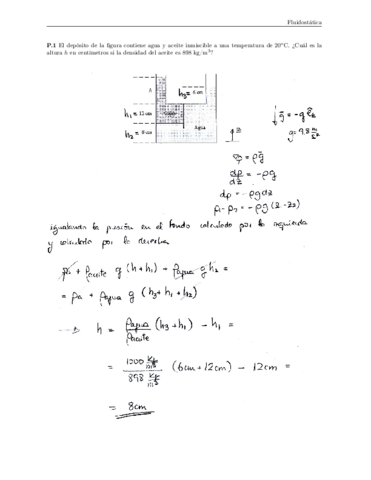 Fluidostática
P.1 El depósito de la figura contiene agua y aceite inmiscible a una temperatura de 20°C. ¿Cuál es la
altura h en centímetros si la densidad del aceite es 898 kg/m³?
h
h₃ = 6 cm
h₁ = 12 cm
h₂ = 8 cm
Agua
z
ḡ = -g ê_z
g = 9,8 m/s²
∇p = ρḡ
dp/dz = -ρg
dp = -ρg dz
p₁ - p₂ = -ρg (z₁ - z₂)
igualando la presión en el fondo calculado por la izquierda
y calculado por la derecha
pa + ρaceite g (h+h₁) + ρagua g h₂ =
= pa + ρagua g (h₃ + h₁ + h₂)
h = ρagua/ρaceite (h₃ + h₁) - h₁ =
= 1000 kg/m³ / 898 kg/m³ (6cm + 12cm) - 12cm =
= 8cm